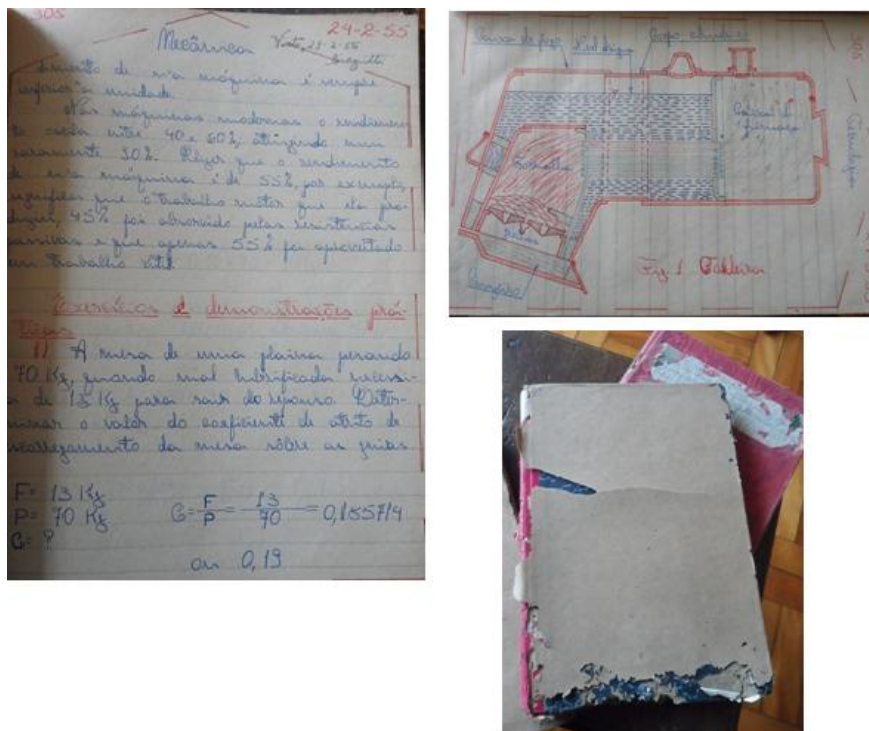 305
24-2-55
Mecânica
dimento de n'a máquina é sempre
inferior a unidade.
Nas máquinas modernas o rendimen
to oscila entre 40 e 60%, atingindo mui
raramente 80%. Dizer que o rendimento
de n'a máquina é de 55%, por exemplo,
significa que o trabalho motor que ela pro
duziu, 45% foi absorvido pelas resistências
passivas e que apenas 55% foi aproveitado
em trabalho util.
Exercícios e demonstrações prá-
ticas
1) A mesa de uma plaina pesando
70 Kg, quando mal lubrificada necessi-
a de 13 Kg para sair do repouso. Deter-
minar o valor do coeficiente de atrito de
escorregamento da mesa sôbre as guias
F= 13 Kg
P= 70 Kg
C= ?
C= F/P = 13/70 = 0,185714
ou 0,19
Caixa de fogo
Nivel dágua
Corpo cilindrico
Caixa de
fumaça
Fornalha
Cinzeiro
Fig. 1 Caldeira
305
Tecnologia